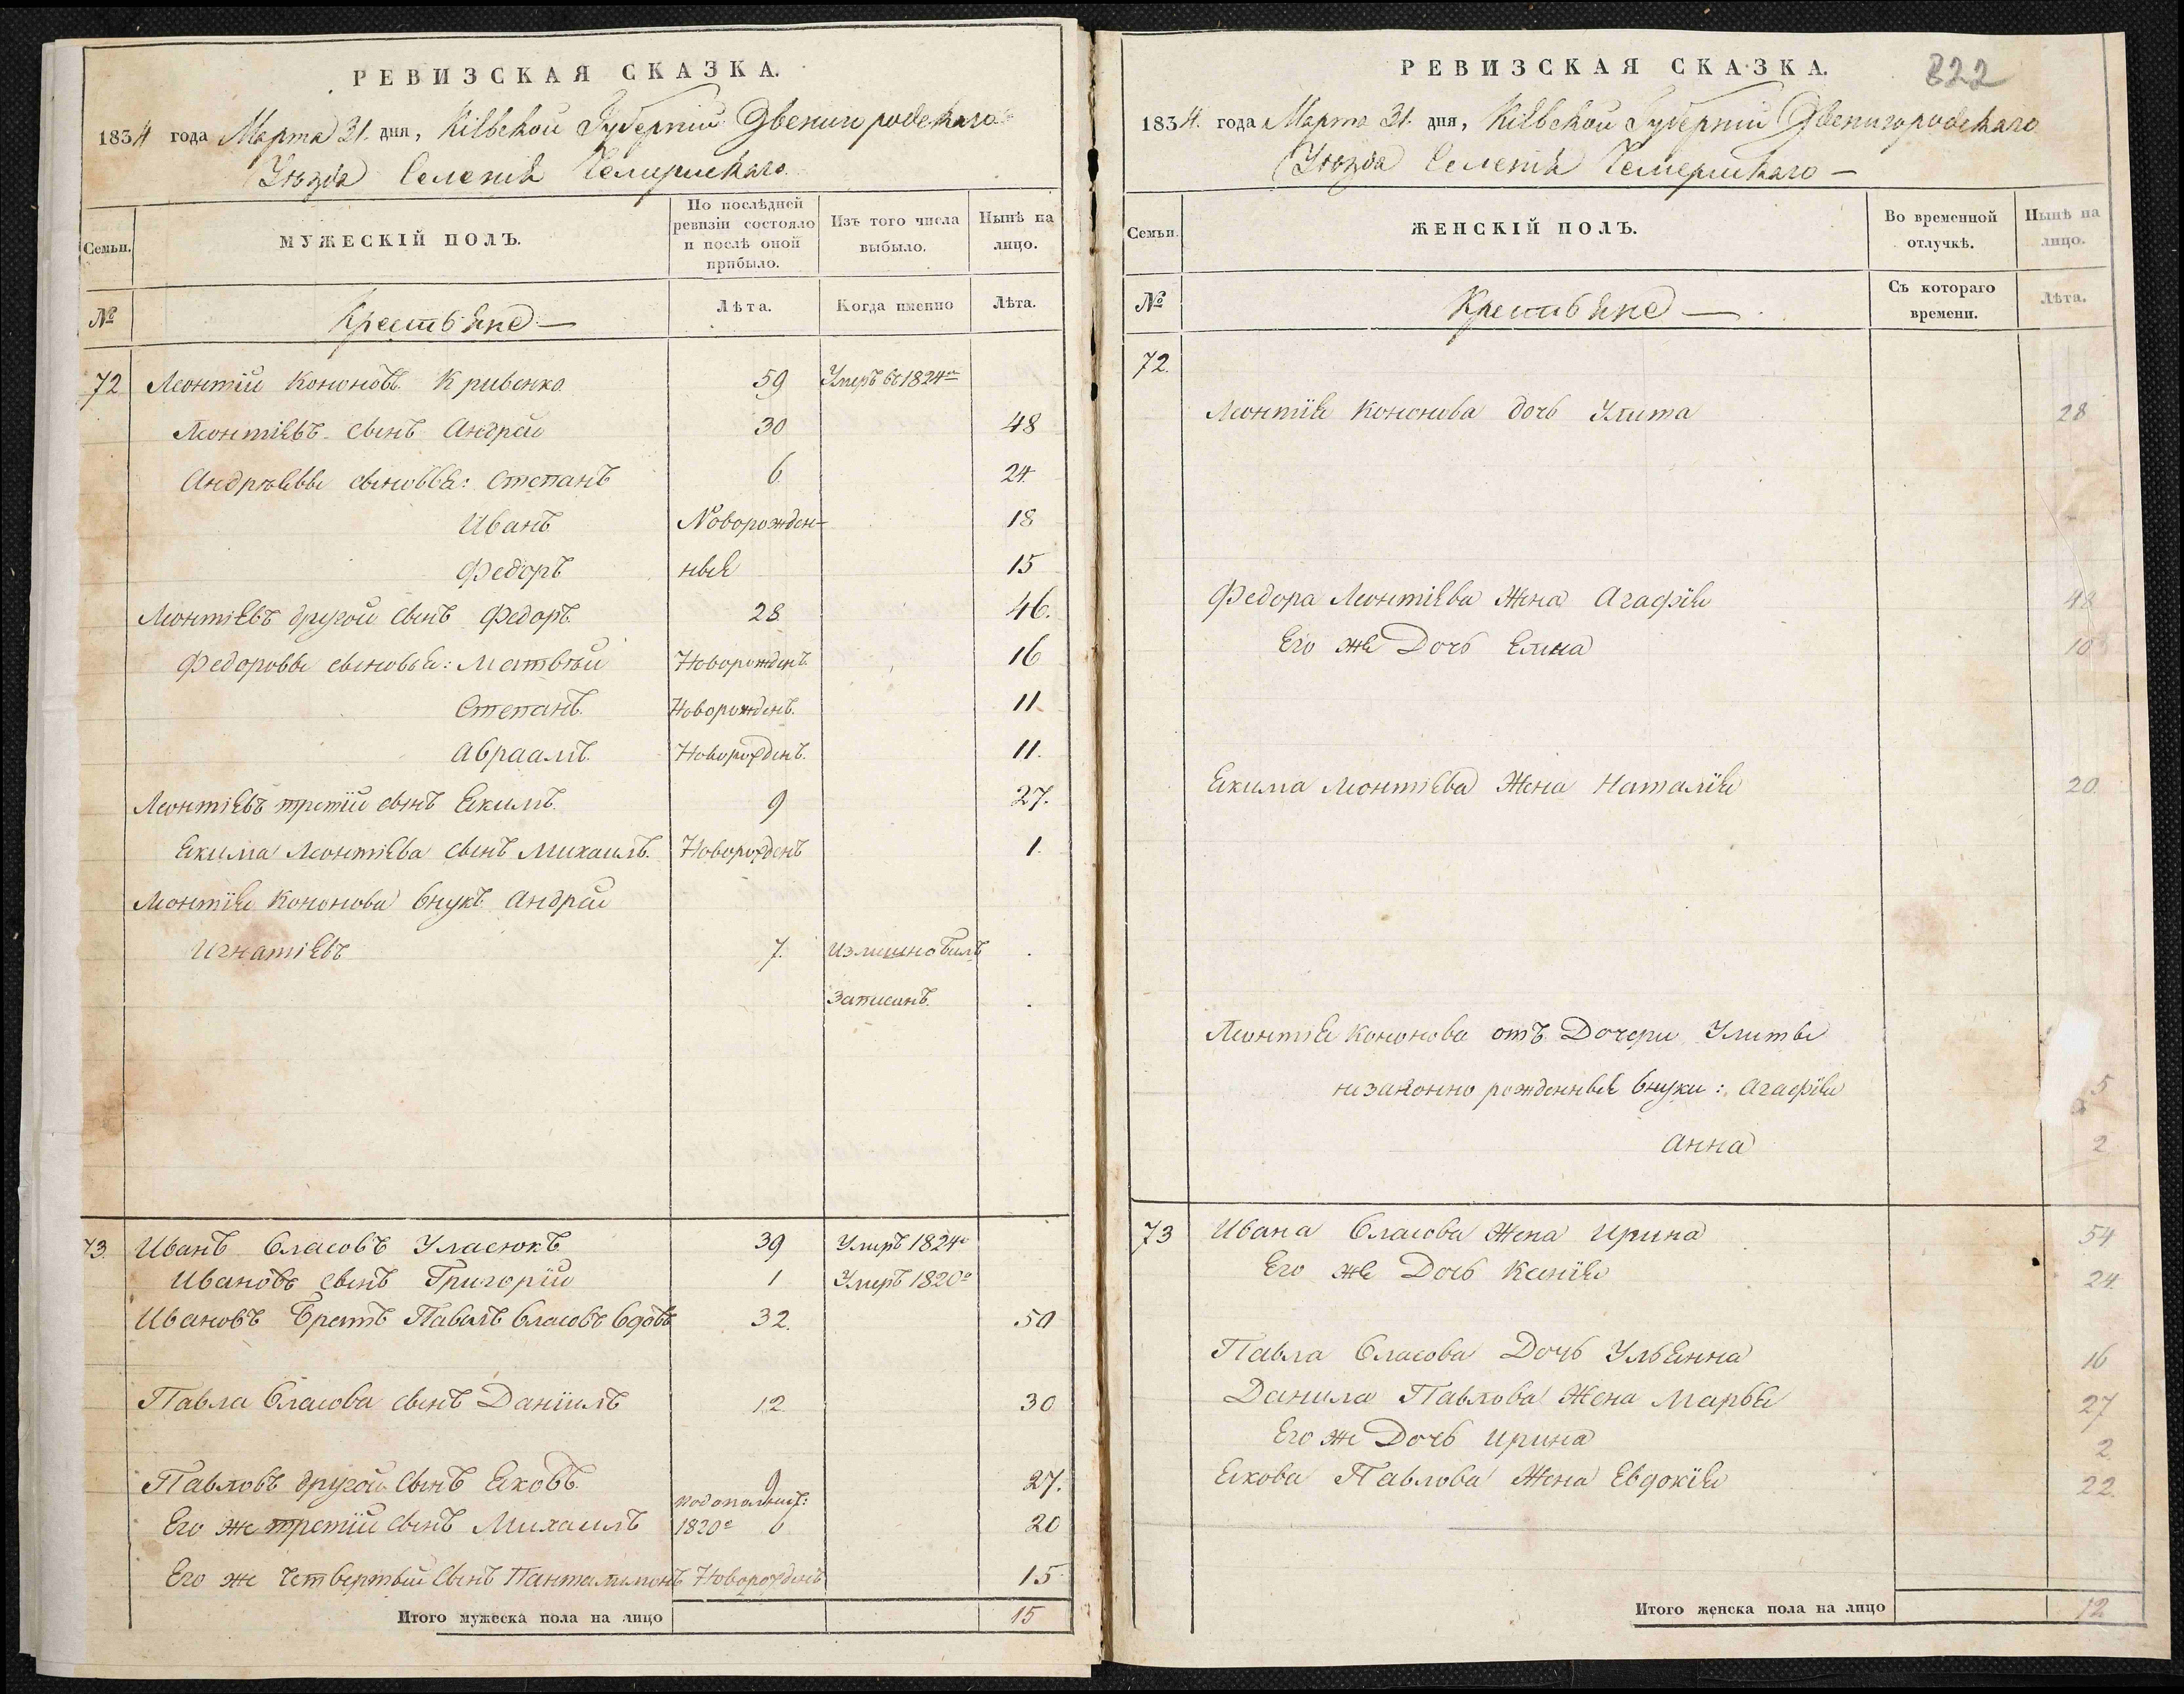 РЕВИЗСКАЯ СКАЗКА.
1834 года Марта 31. дня, Кіевской Губерніи Звенигородскаго
Уѣзда Селенія Чемерискаго
Семьи.
МУЖЕСКІЙ ПОЛЪ.
По послѣдней ревизіи состояло и послѣ оной прибыло.
Изъ того числа выбыло.
Нынѣ на лицо.
№
Крестьяне —
Лѣта.
Когда именно
Лѣта.
72 Леонтій Кононовъ Кривенко 59 Умеръ въ 1824мъ
Леонтіевъ сынъ Андрей 30 48
Андрѣевы сыновья: Степанъ 6 24
Иванъ Новорожден- 18
Федоръ ные 15
Леонтіевъ другой сынъ Федоръ 28 46.
Федоровы сыновья: Матвѣй Новорожденъ 16
Степанъ. Новорожденъ. 11
Авраамъ. Новорожденъ. 11.
Леонтіевъ третій сынъ Якимъ. 9 27.
Якима Леонтіева сынъ Михаилъ. Новорожденъ 1.
Леонтія Кононова внукъ Андрей
Игнатіевъ 7. излишно былъ
записанъ.
73. Иванъ Власовъ Уласюкъ 39 Умеръ 1824го
Ивановъ сынъ Григорій 1 Умеръ 1820го
Ивановъ братъ Павелъ Власовъ вдовъ 32. 50
Павла Власова сынъ Даніилъ 12 30
Павловъ другой сынъ Яковъ. 9 27.
Его же третій сынъ Михаилъ 1820го 6 20
Его же четвертый сынъ Пантелимонъ Новорожденъ 15
Итого мужеска пола на лицо 15
РЕВИЗСКАЯ СКАЗКА.
822
1834. года Марта 31. дня, Кіевской Губерніи Звенигородскаго
Уѣзда Селенія Чемерискаго —
Семьи.
ЖЕНСКІЙ ПОЛЪ.
Во временной отлучкѣ.
Нынѣ на лицо.
№
Крестьяне —
Съ котораго времени.
Лѣта.
72.
Леонтія Кононова дочь Улита 28
Федора Леонтіева Жена Агафія 48
Его же Дочь Елена 10
Якима Леонтіева Жена Наталія 20
Леонтія Кононова отъ Дочери Улиты
незаконно рожденные внуки: Агафія 5
Анна 2
73 Ивана Власова Жена Ирина 54
Его же Дочь Ксенія 24
Павла Власова Дочь Ульянна 16
Данила Павлова Жена Марья 27
Его же Дочь Ирина 2
Якова Павлова Жена Евдокія 22
Итого женска пола на лицо 12